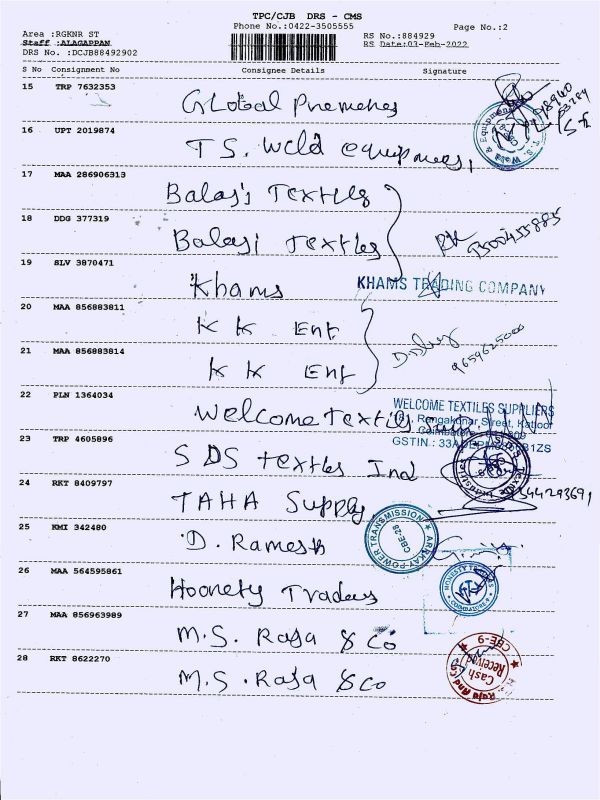 TPC/CJB DRS - CMS
Phone No.:0422-3505555
Page No.:2
Area :RGKNR ST
RS No.:884929
Staff :ALAGAPPAN
RS Date:03-Feb-2022
DRS No. :DCJB88492902
S No Consignment No Consignee Details Signature
15 TRP 7632353 Global
16 UPT 2019874 T.S. Weld
17 MAA 286906313 Balaji Textiles
18 DDG 377319 Balaji Textiles
9500455885
19 SLV 3870471 Khams KHAMS TRADING COMPANY
20 MAA 856883811 K K Ent
21 MAA 856883814 K K Ent
9659625000
22 PLN 1364034 Welcome Textiles
WELCOME TEXTILES SUPPLIERS
Rengakonar Street, Kattoor
Coimbatore
GSTIN.: 33A
23 TRP 4605896 SDS Textiles Ind
24 RKT 8409797 TAHA Supply
344293691
25 KMI 342480 D. Ramesh
ARRKAY POWER TRANSMISSION
CBE-28
26 MAA 564595861 Hoonety Traders
HONESTY TRADERS
COIMBATORE
27 MAA 856963989 M.S. Raja & Co
CBE-9
Cash
Received
28 RKT 8622270 M.S. Raja & Co